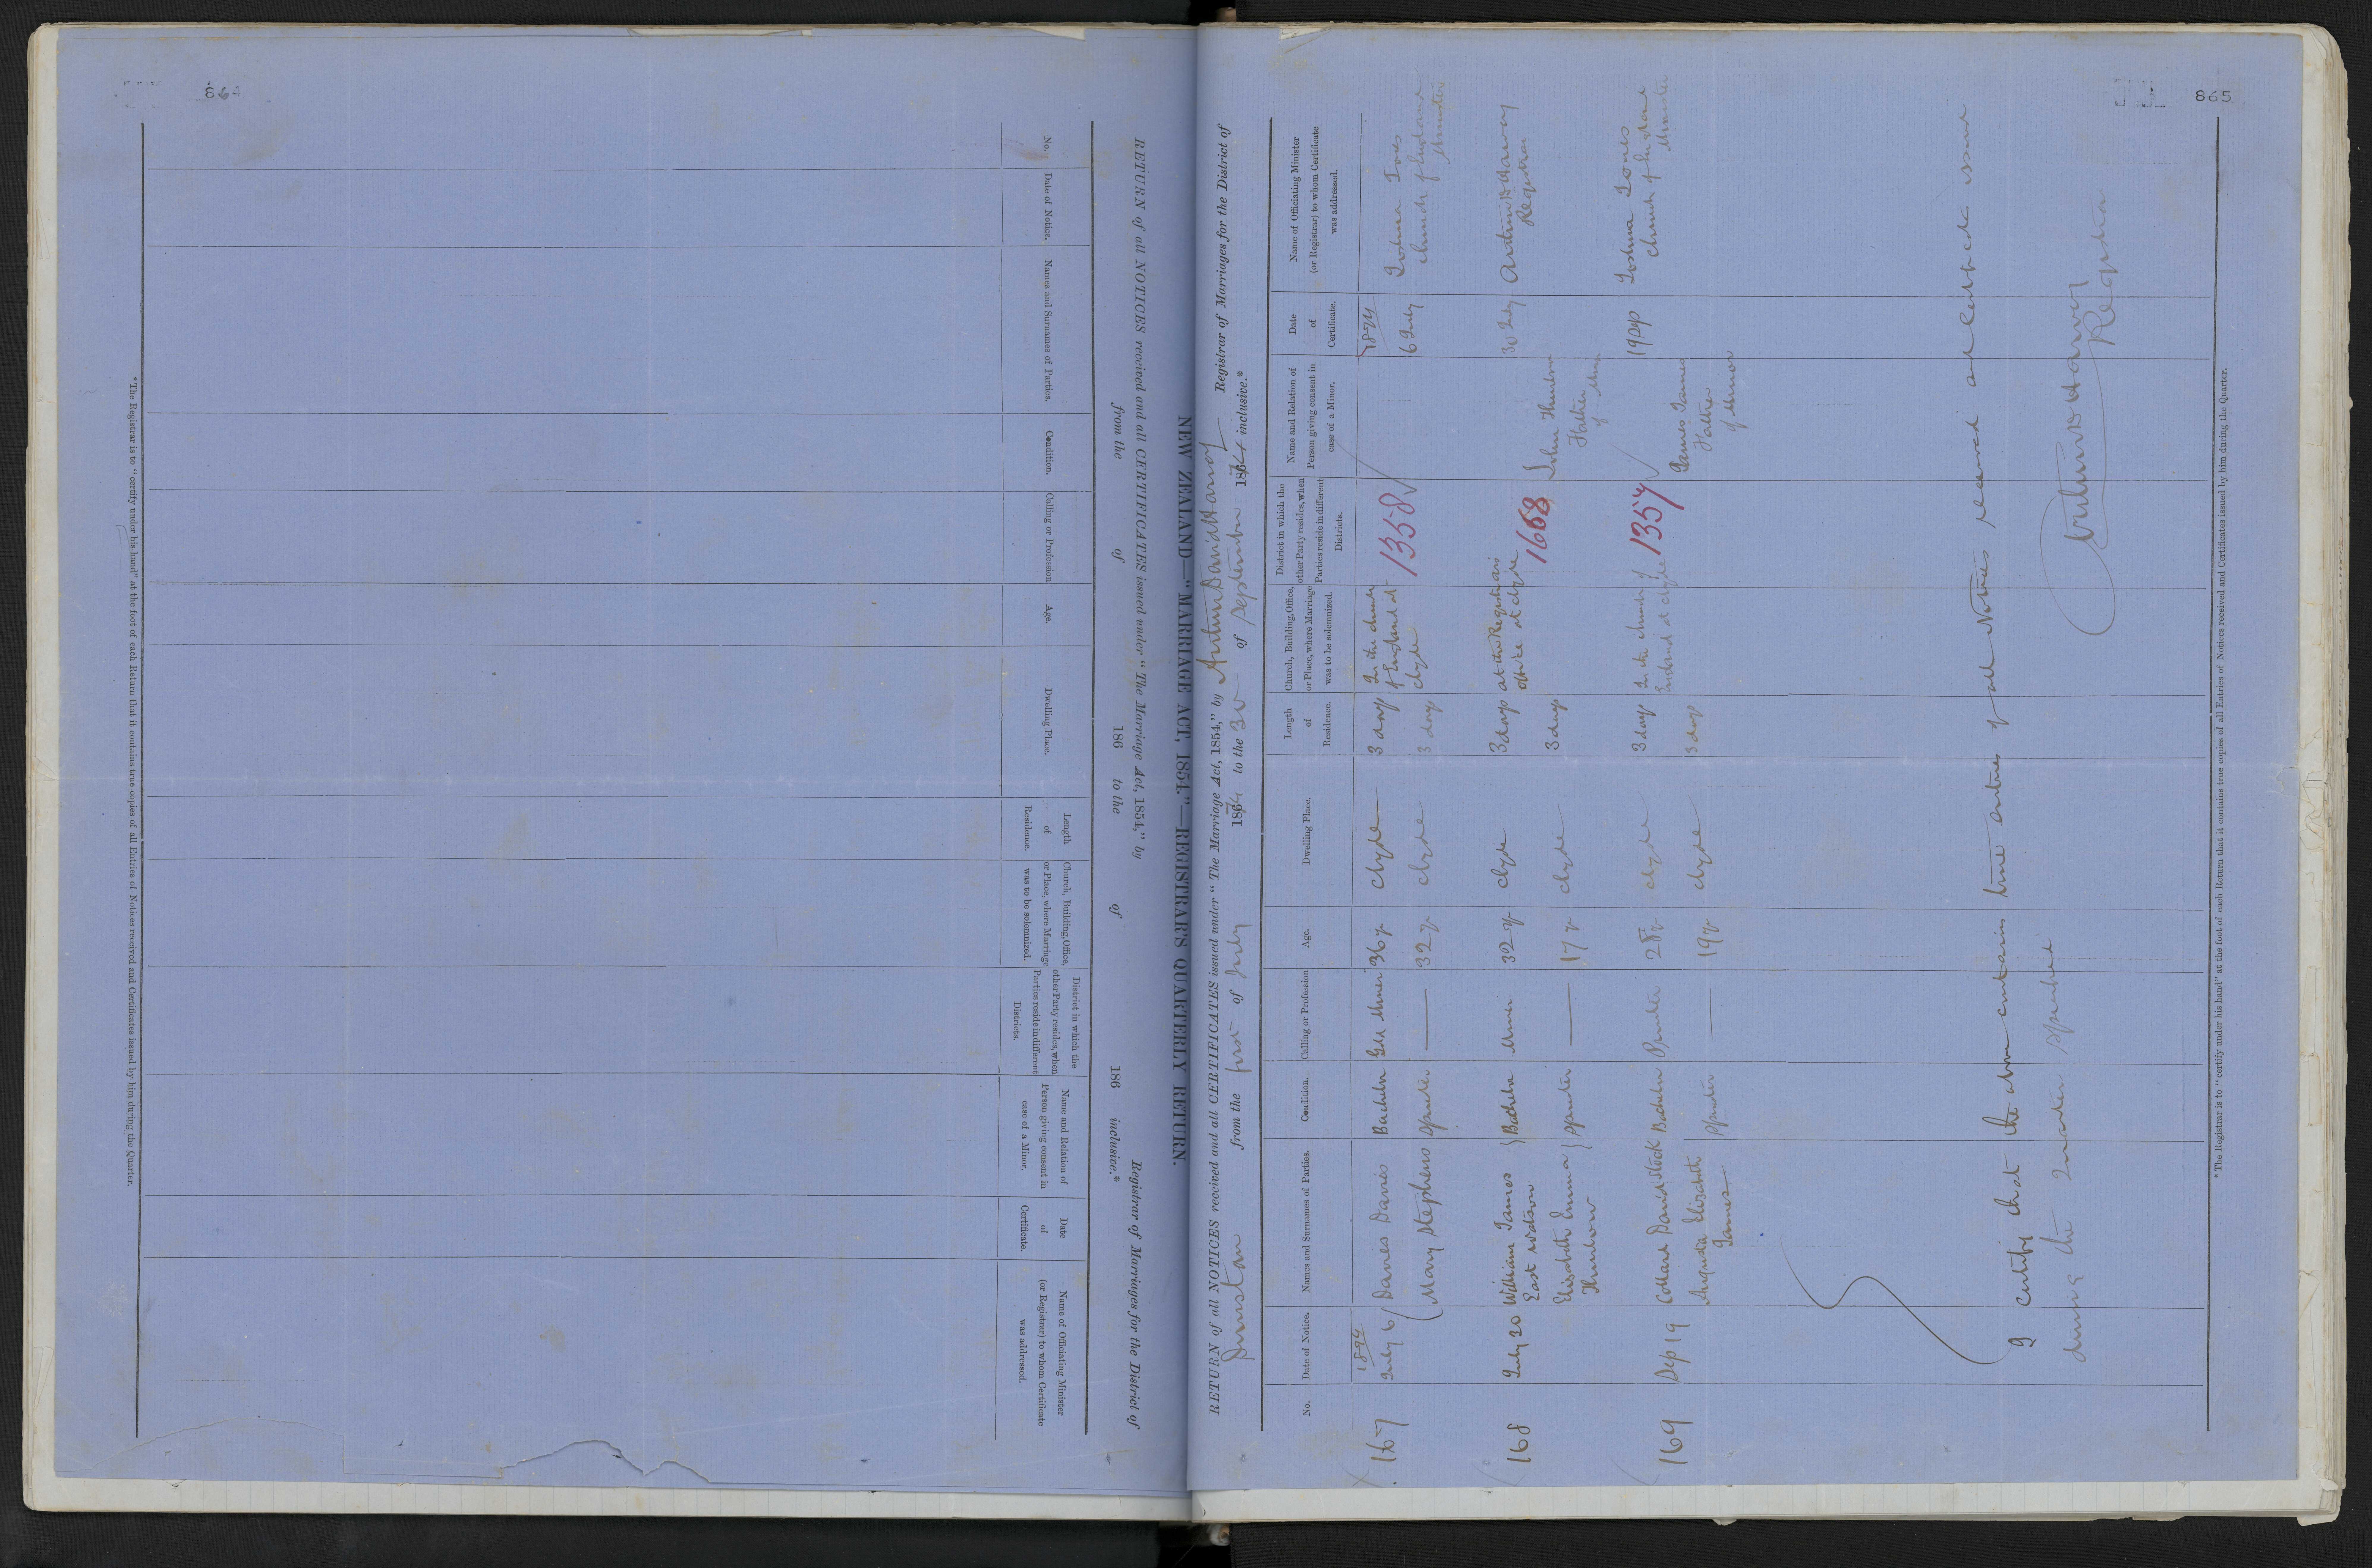 *The Registrar is to "certify under his hand" at the foot of each Return that it contains true copies of all Entries of Notices received and Certificates issued by him during the Quarter.
No.
Date of Notice.
Names and Surnames of Parties.
Condition.
Calling or Profession
Age.
Dwelling Place.
Length
of
Residence.
Church, Building, Office,
or Place, where Marriage
was to be solemnized.
District in which the
other Party resides, when
Parties reside in different
Districts.
Name and Relation of
Person giving consent in
case of a Minor.
Date
of
Certificate.
Name of Officiating Minister
(or Registrar) to whom Certificate
was addressed.
RETURN of all NOTICES received and all CERTIFICATES issued under "The Marriage Act, 1854," by Registrar of Marriages for the District of
from the of 186 to the of 186 inclusive.*
NEW ZEALAND—"MARRIAGE ACT, 1854."—REGISTRAR'S QUARTERLY RETURN.
RETURN of all NOTICES received and all CERTIFICATES issued under "The Marriage Act, 1854," by Arthur David Harvey Registrar of Marriages for the District of
Dunstan from the first of July 1874 to the 30 of September 1874 inclusive.*
No.
Date of Notice.
Names and Surnames of Parties.
Condition.
Calling or Profession
Age.
Dwelling Place.
Length
of
Residence.
Church, Building, Office,
or Place, where Marriage
was to be solemnized.
District in which the
other Party resides, when
Parties reside in different
Districts.
Name and Relation of
Person giving consent in
case of a Minor.
Date
of
Certificate.
Name of Officiating Minister
(or Registrar) to whom Certificate
was addressed.
1874 1874
167 July 6 Davies Davies Bachelor Gold Miner 36 y Clyde 3 days In the church 1358 6 July Joshua Jones
of England at Church of England
Mary Stephens Spinster — 32 y Clyde 3 days Clyde Minister
168 July 30 William James Bachelor Miner 32 y Clyde 3 days at the Registrars 1668 30 July Arthur D Harvey
East Watson office at Clyde John Registrar
Elizabeth Emma Spinster — 17 y Clyde 3 days Father
of Minor
169 Sep 19 Collard David Stock Bachelor Printer 28 y Clyde 3 days In the church of 1357 19 Sep Joshua Jones
England at Clyde James James Church of England
Augusta Elizabeth Spinster — 19 y Clyde 3 days Father Minister
James of Minor
I certify that the above contains true entries of all Notices received and Certificates issued
during the Quarter specified
Arthur D Harvey
Registrar
*The Registrar is to "certify under his hand" at the foot of each Return that it contains true copies of all Entries of Notices received and Certificates issued by him during the Quarter.
865